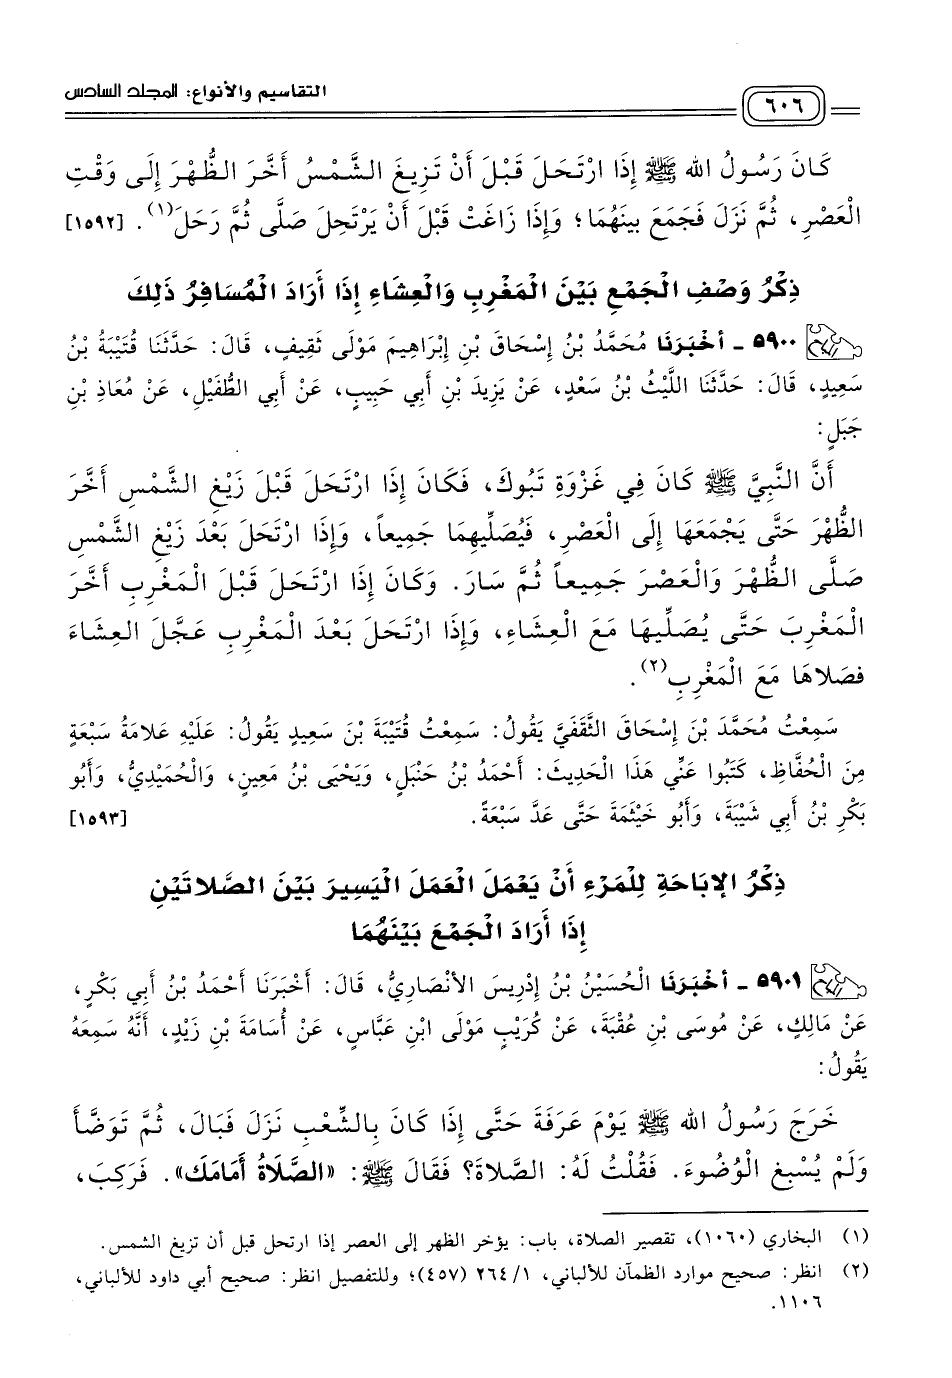 التقاسيم والأنواع: المجلد السادس
٦٠٦
كَانَ رَسُولُ الله ﷺ إِذَا ارْتَحَلَ قَبْلَ أَنْ تَزِيغَ الشَّمْسُ أَخَّرَ الظُّهْرَ إِلَى وَقْتِ
الْعَصْرِ، ثُمَّ نَزَلَ فَجَمَعَ بينَهُمَا؛ وَإِذَا زَاغَتْ قَبْلَ أَنْ يَرْتَحِلَ صَلَّى ثُمَّ رَحَلَ(١). [١٥٩٢]
ذِكْرُ وَصْفِ الْجَمْعِ بَيْنَ الْمَغْرِبِ وَالْعِشَاءِ إِذَا أَرَادَ الْمُسَافِرُ ذَلِكَ
٥٩٠٠ - أخْبَرَنَا مُحَمَّدُ بْنُ إِسْحَاقَ بْنِ إِبْرَاهِيمَ مَوْلَى ثَقِيفٍ، قَالَ: حَدَّثَنَا قُتَيْبَةُ بْنُ
سَعِيدٍ، قَالَ: حَدَّثَنَا اللَّيْثُ بْنُ سَعْدٍ، عَنْ يَزِيدَ بْنِ أَبِي حَبِيبٍ، عَنْ أَبِي الطُّفَيْلِ، عَنْ مُعَاذِ بْنِ
جَبَلٍ:
أَنَّ النَّبِيَّ ﷺ كَانَ فِي غَزْوَةِ تَبُوكَ، فَكَانَ إِذَا ارْتَحَلَ قَبْلَ زَيْغِ الشَّمْسِ أَخَّرَ
الظُّهْرَ حَتَّى يَجْمَعَهَا إِلَى الْعَصْرِ، فَيُصَلِّيهِمَا جَمِيعاً، وَإِذَا ارْتَحَلَ بَعْدَ زَيْغِ الشَّمْسِ
صَلَّى الظُّهْرَ وَالْعَصْرَ جَمِيعاً ثُمَّ سَارَ. وَكَانَ إِذَا ارْتَحَلَ قَبْلَ الْمَغْرِبِ أَخَّرَ
الْمَغْرِبَ حَتَّى يُصَلِّيَهَا مَعَ الْعِشَاءِ، وَإِذَا ارْتَحَلَ بَعْدَ الْمَغْرِبِ عَجَّلَ العِشَاءَ
فصَلاهَا مَعَ الْمَغْرِبِ(٢).
سَمِعْتُ مُحَمَّدَ بْنَ إِسْحَاقَ الثَّقَفَيَّ يَقُولُ: سَمِعْتُ قُتَيْبَةَ بْنَ سَعِيدٍ يَقُولُ: عَلَيْهِ عَلامَةُ سَبْعَةٍ
مِنَ الْحُفَّاظِ، كَتَبُوا عَنِّي هَذَا الْحَدِيثَ: أَحْمَدُ بْنُ حَنْبَلٍ، وَيَحْيَى بْنُ مَعِينٍ، وَالْحُمَيْدِيُّ، وَأَبُو
بَكْرِ بْنُ أَبِي شَيْبَةَ، وَأَبُو خَيْثَمَةَ حَتَّى عَدَّ سَبْعَةً. [١٥٩٣]
ذِكْرُ الإبَاحَةِ لِلْمَرْءِ أَنْ يَعْمَلَ الْعَمَلَ الْيَسِيرَ بَيْنَ الصَّلاتَيْنِ
إِذَا أَرَادَ الْجَمْعَ بَيْنَهُمَا
٥٩٠١ - أخْبَرَنَا الْحُسَيْنُ بْنُ إِدْرِيسَ الأَنْصَارِيُّ، قَالَ: أَخْبَرَنَا أَحْمَدُ بْنُ أَبِي بَكْرٍ،
عَنْ مَالِكٍ، عَنْ مُوسَى بْنِ عُقْبَةَ، عَنْ كُرَيْبٍ مَوْلَى ابْنِ عَبَّاسٍ، عَنْ أُسَامَةَ بْنِ زَيْدٍ، أَنَّهُ سَمِعَهُ
يَقُولُ:
خَرَجَ رَسُولُ الله ﷺ يَوْمَ عَرَفَةَ حَتَّى إِذَا كَانَ بِالشِّعْبِ نَزَلَ فَبَالَ، ثُمَّ تَوَضَّأَ
وَلَمْ يُسْبِغِ الْوُضُوءَ. فَقُلْتُ لَهُ: الصَّلاةَ؟ فَقَالَ ﷺ: «الصَّلاَةُ أَمَامَكَ». فَرَكِبَ،
(١) البخاري (١٠٦٠)، تقصير الصلاة، باب: يؤخر الظهر إلى العصر إذا ارتحل قبل أن تزيغ الشمس.
(٢) انظر: صحيح موارد الظمآن للألباني، ١/ ٢٦٤ (٤٥٧)؛ وللتفصيل انظر: صحيح أبي داود للألباني،
١١٠٦.